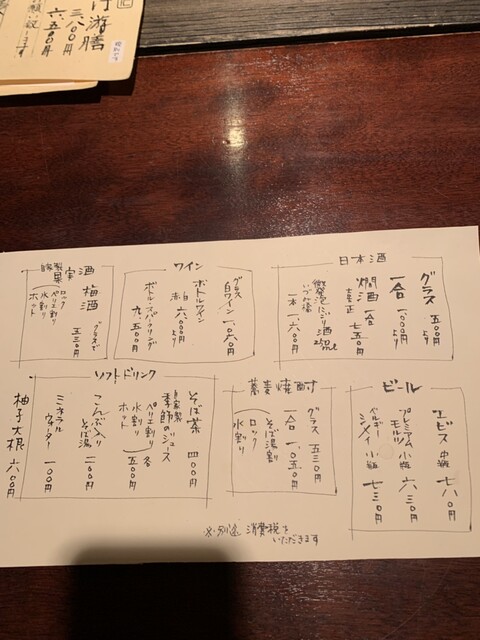 三、八〇〇円
六、五〇〇円
日本酒
グラス 五〇〇円より
一合 一、〇〇〇円より
燗酒 一合 七五〇円
微発泡にごり酒
一本 一、六〇〇円
ワイン
グラス
白ワイン 一、〇六〇円
ボトルワイン
赤 白 六、〇〇〇円より
ボトル・スパークリング
九、五〇〇円
自家製 果実酒
梅酒 グラスで 五三〇円
(ロック
ペリエ割り
水割り
ホット
ビール
エビス 中瓶 七八〇円
プレミアムモルツ 小瓶 六三〇円
ベルギー シメイ 小瓶 七三〇円
蕎麦焼酎
グラス 五三〇円
一合 一、〇五〇円
(そば湯割
ロック
水割り
ソフトドリンク
そば茶 四〇〇円
自家製 季節のジュース
(ペリエ割り
水割り
ホット) 各五〇〇円
こんぶ入りそば湯 二〇〇円
ミネラルウォーター 一〇〇円
柚子大根 六〇〇円
※別途 消費税を
いただきます